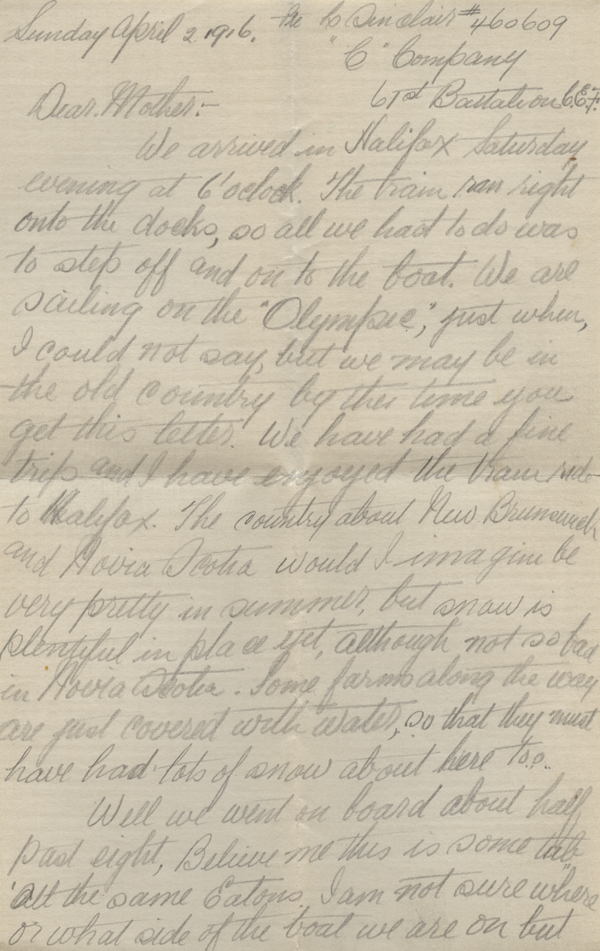 Sunday April 2 1916. Pte Sinclair #460609
"C" Company
61st Battalion C.E.F.
Dear Mother:-
We arrived in Halifax Saturday
evening at 6'oclock. The train ran right
onto the docks, so all we had to do was
to step off and on to the boat. We are
sailing on the "Olympic", just when,
I could not say, but we may be in
the old country by the time you
get this letter. We have had a fine
trip and I have enjoyed the train ride
to Halifax. The country about New Brunswick
and Novia Scotia would I imagin be
very pretty in summer, but snow is
plentiful in place yet, although not so bad
in Novia Scotia. Some farms along the way
are just covered with water, so that they must
have had lots of snow about here too.
Well we went on board about half
past eight, Believe me this is some tub
all the same Eatons. I am not sure where
or what side of the boat we are on but